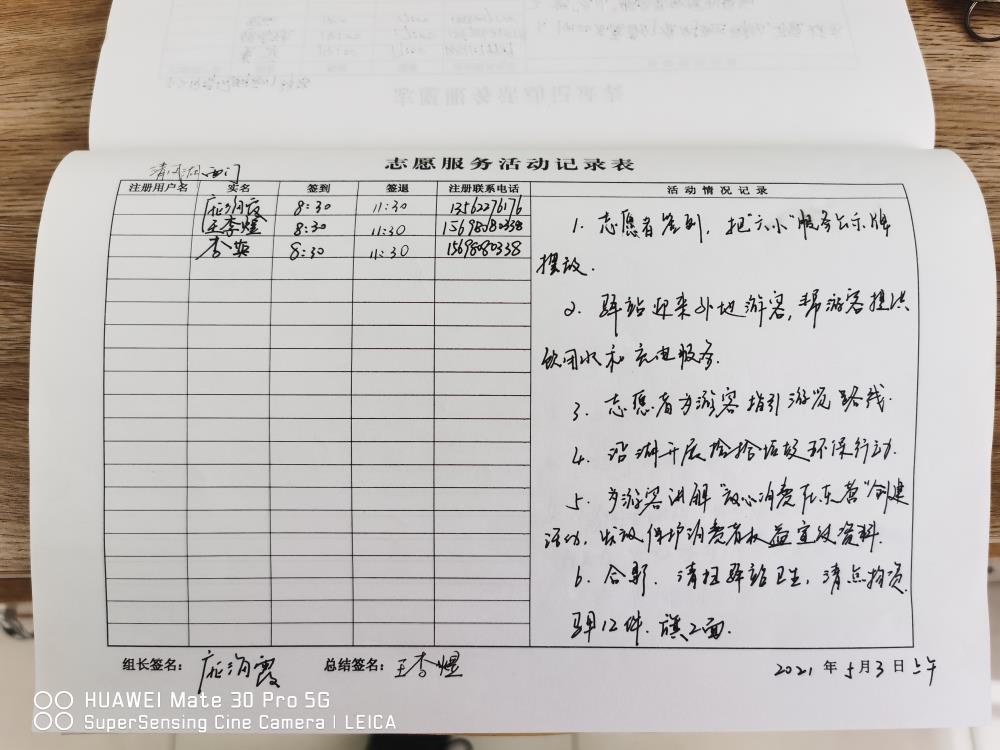 志愿服务活动记录表
清风湖西门
注册用户名 实名 签到 签退 注册联系电话 活动情况记录
8:30 11:30 13562276176
王李煜 8:30 11:30 15698080338
李英 8:30 11:30 15698080338
1. 志愿者签到，把"六小"服务公示牌
摆放.
2. 驿站迎来外地游客，帮游客提供
饮用水和充电服务.
3. 志愿者为游客指引游览路线.
4. 沿湖开展捡拾垃圾环保行动.
5. 为游客讲解"放心消费在东营"创建
活动，发放保护消费者权益宣传资料.
6. 合影. 清扫驿站卫生，清点物资
马甲12件. 旗2面.
组长签名： 总结签名：王李煜
2021年5月3日上午
HUAWEI Mate 30 Pro 5G
SuperSensing Cine Camera | LEICA